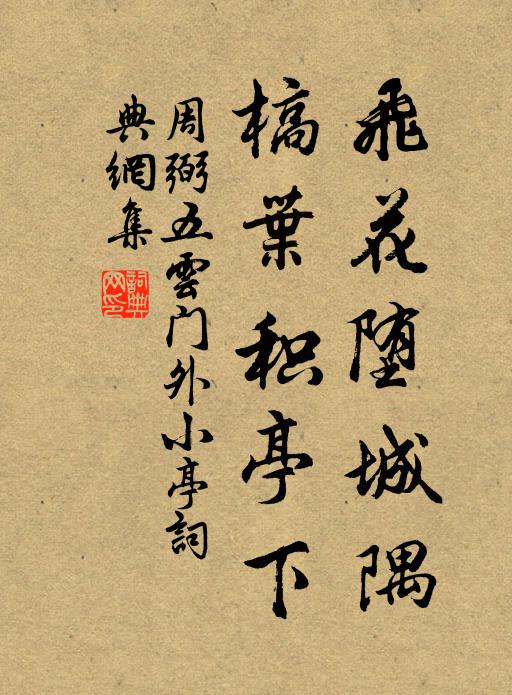 飛花堕城隅
槁葉积亭下
周弼五雲门外小亭詞
典網集
詞典网印